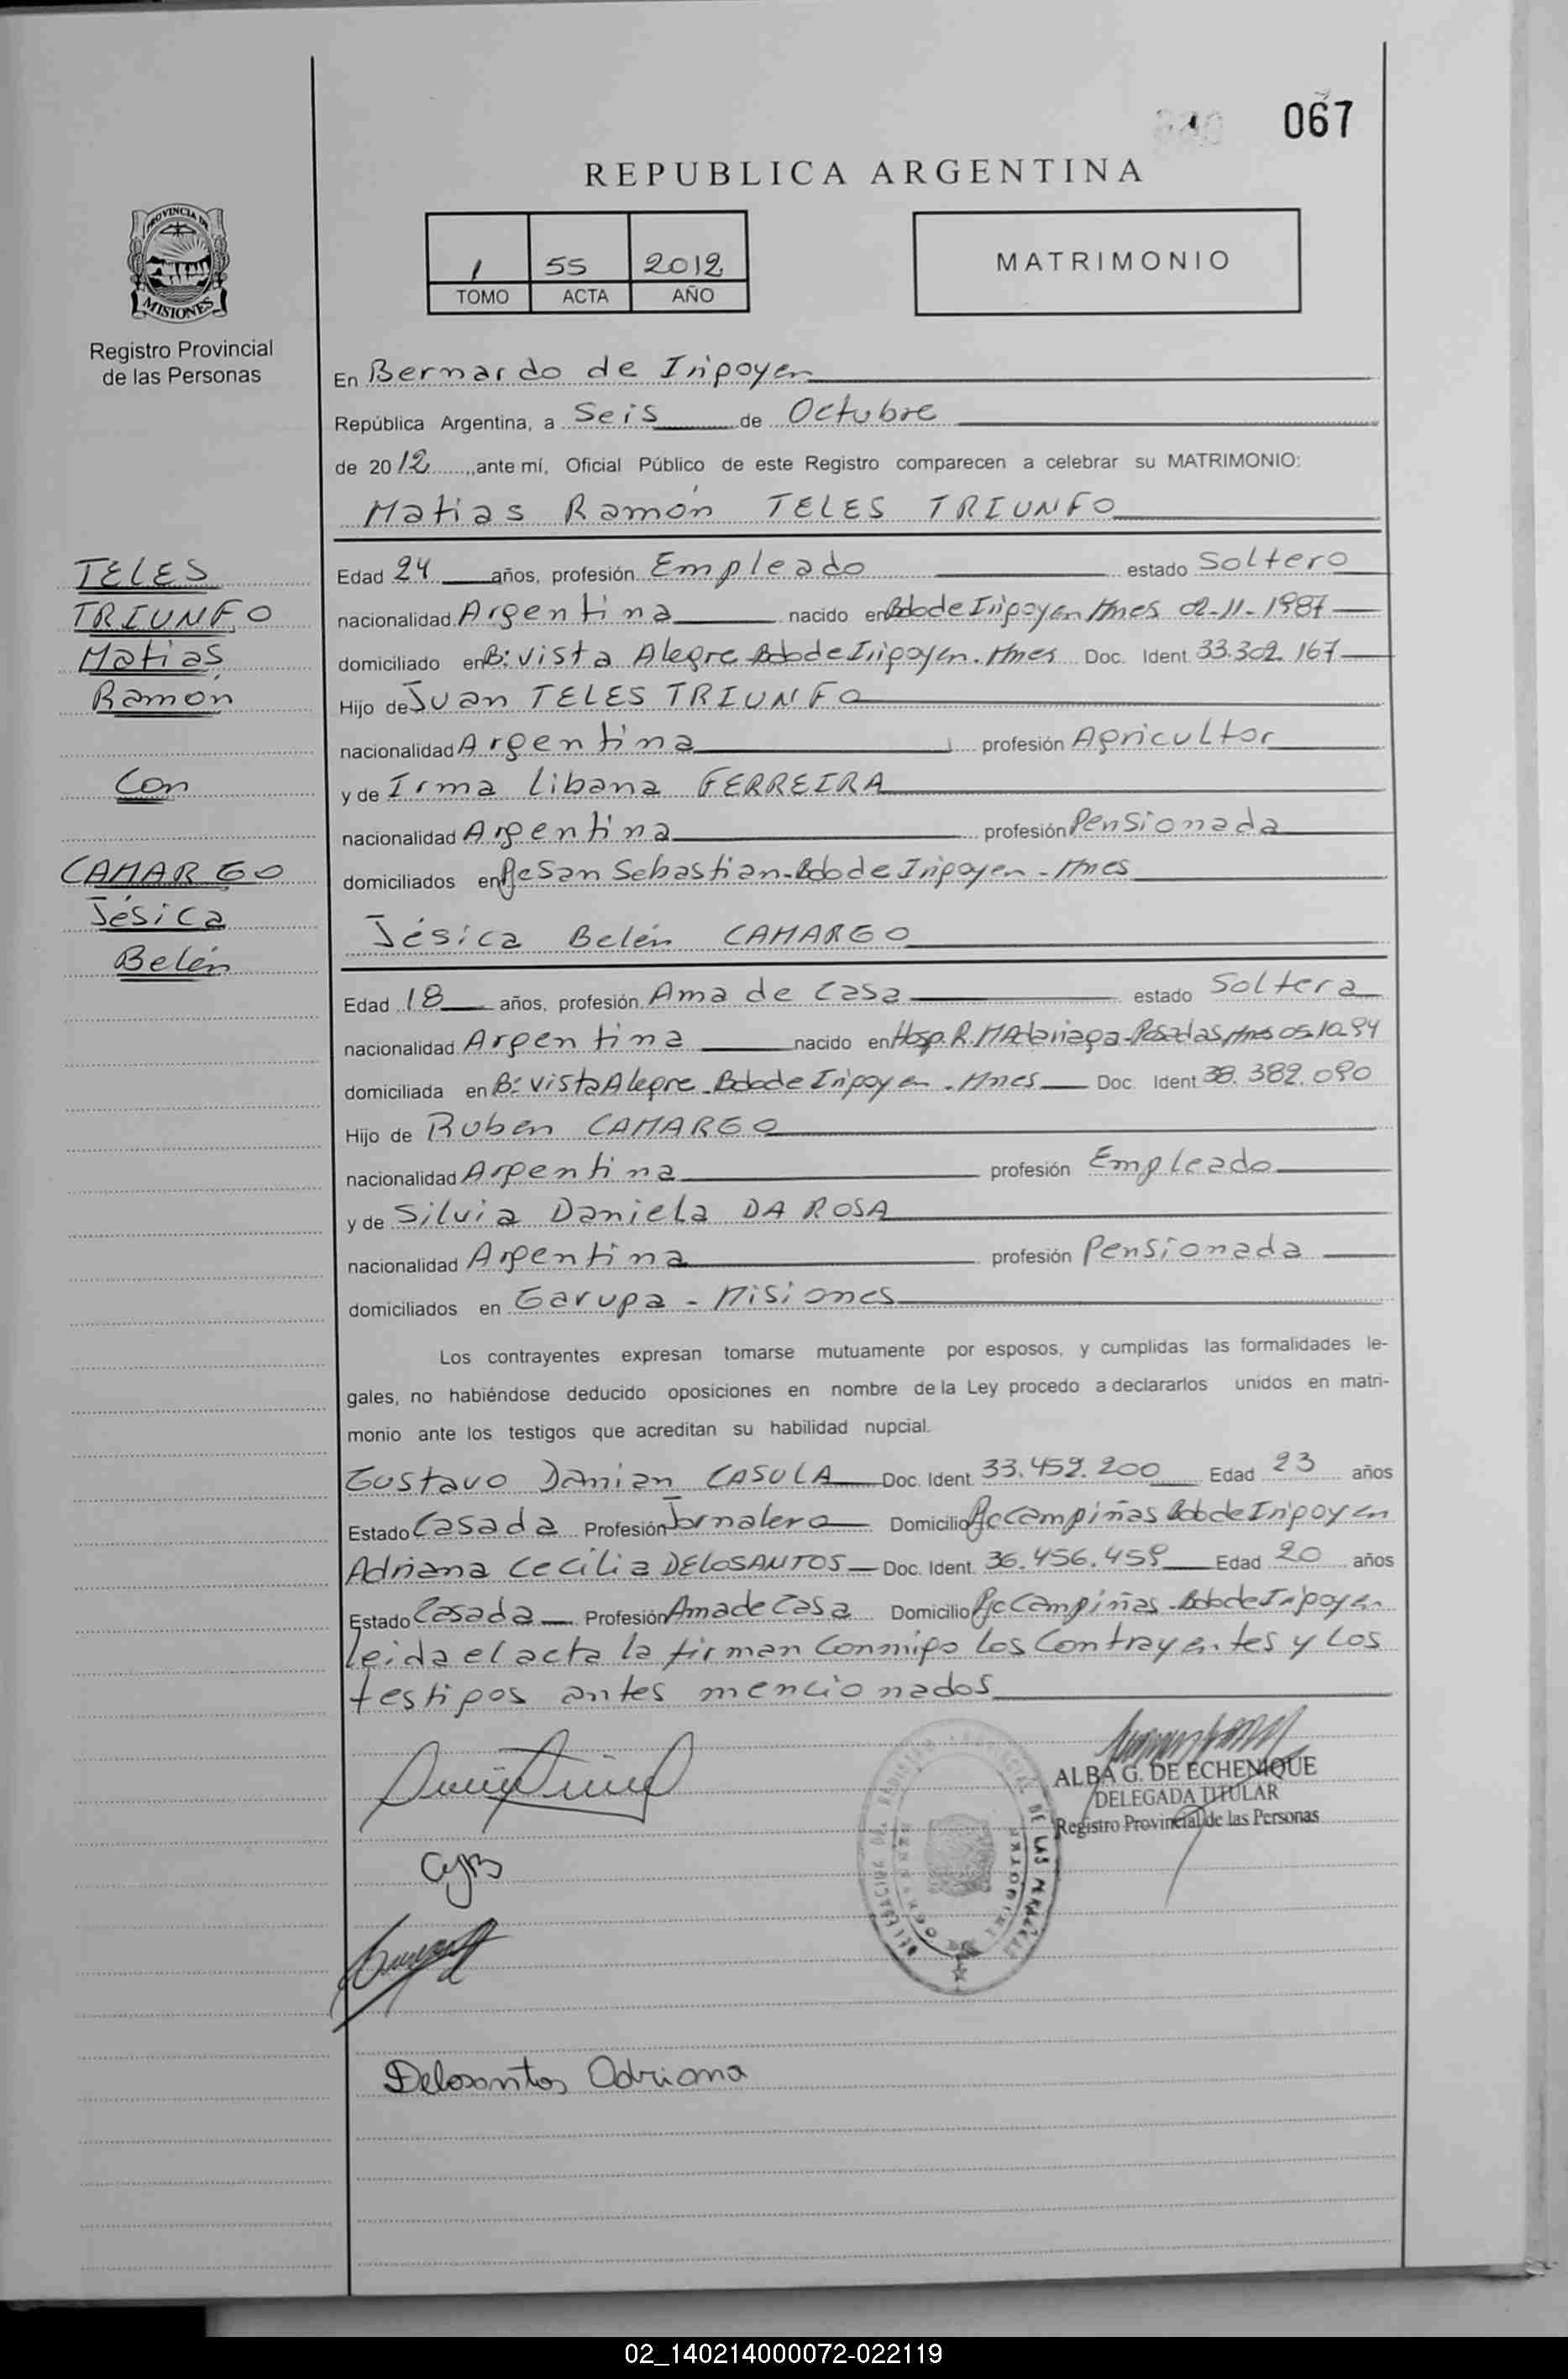 067
REPUBLICA ARGENTINA
PROVINCIA DE
MISIONES
Registro Provincial
de las Personas
1 55 2012
TOMO ACTA AÑO
MATRIMONIO
En Bernardo de Irigoyen
República Argentina, a Seis de Octubre
de 2012, ante mí, Oficial Público de este Registro comparecen a celebrar su MATRIMONIO:
Matias Ramón TELES TRIUNFO
TELES
TRIUNFO
Matias
Ramón
Con
CAMARGO
Jésica
Belén
Edad 24 años, profesión Empleado estado Soltero
nacionalidad Argentina nacido en Bdo de Irigoyen Mnes 02-11-1987
domiciliado en B: Vista Alegre Bdo de Irigoyen. Mnes Doc. Ident. 33.302.167
Hijo de Juan TELES TRIUNFO
nacionalidad Argentina profesión Agricultor
y de Irma Libana FERREIRA
nacionalidad Argentina profesión Pensionada
domiciliados en Pje San Sebastian-Bdo de Irigoyen - Mnes
Jésica Belén CAMARGO
Edad 18 años, profesión Ama de Casa estado Soltera
nacionalidad Argentina nacido en Hosp. R. MAdariaga-Posadas, Mnes 05.10.94
domiciliada en B: Vista Alegre Bdo de Irigoyen. Mnes Doc. Ident. 38.382.090
Hijo de Ruben CAMARGO
nacionalidad Argentina profesión Empleado
y de Silvia Daniela DA ROSA
nacionalidad Argentina profesión Pensionada
domiciliados en Garupa - Misiones
Los contrayentes expresan tomarse mutuamente por esposos, y cumplidas las formalidades le-
gales, no habiéndose deducido oposiciones en nombre de la Ley procedo a declararlos unidos en matri-
monio ante los testigos que acreditan su habilidad nupcial.
Gustavo Damian CASULA Doc. Ident. 33.459.200 Edad 23 años
Estado Casada Profesión Jornalero Domicilio Pje Campiñas Bdo de Irigoyen
Adriana Cecilia DELOSANTOS Doc. Ident. 36.456.459 Edad 20 años
Estado Casada Profesión Ama de Casa Domicilio Pje Campiñas. Bdo de Irigoyen
leida el acta la firman Conmigo los Contrayentes y los
testigos antes mencionados
ALBA G. DE ECHENIQUE
DELEGADA TITULAR
Registro Provincial de las Personas
DE LAS
Delosantos Adriana
02_140214000072-022119